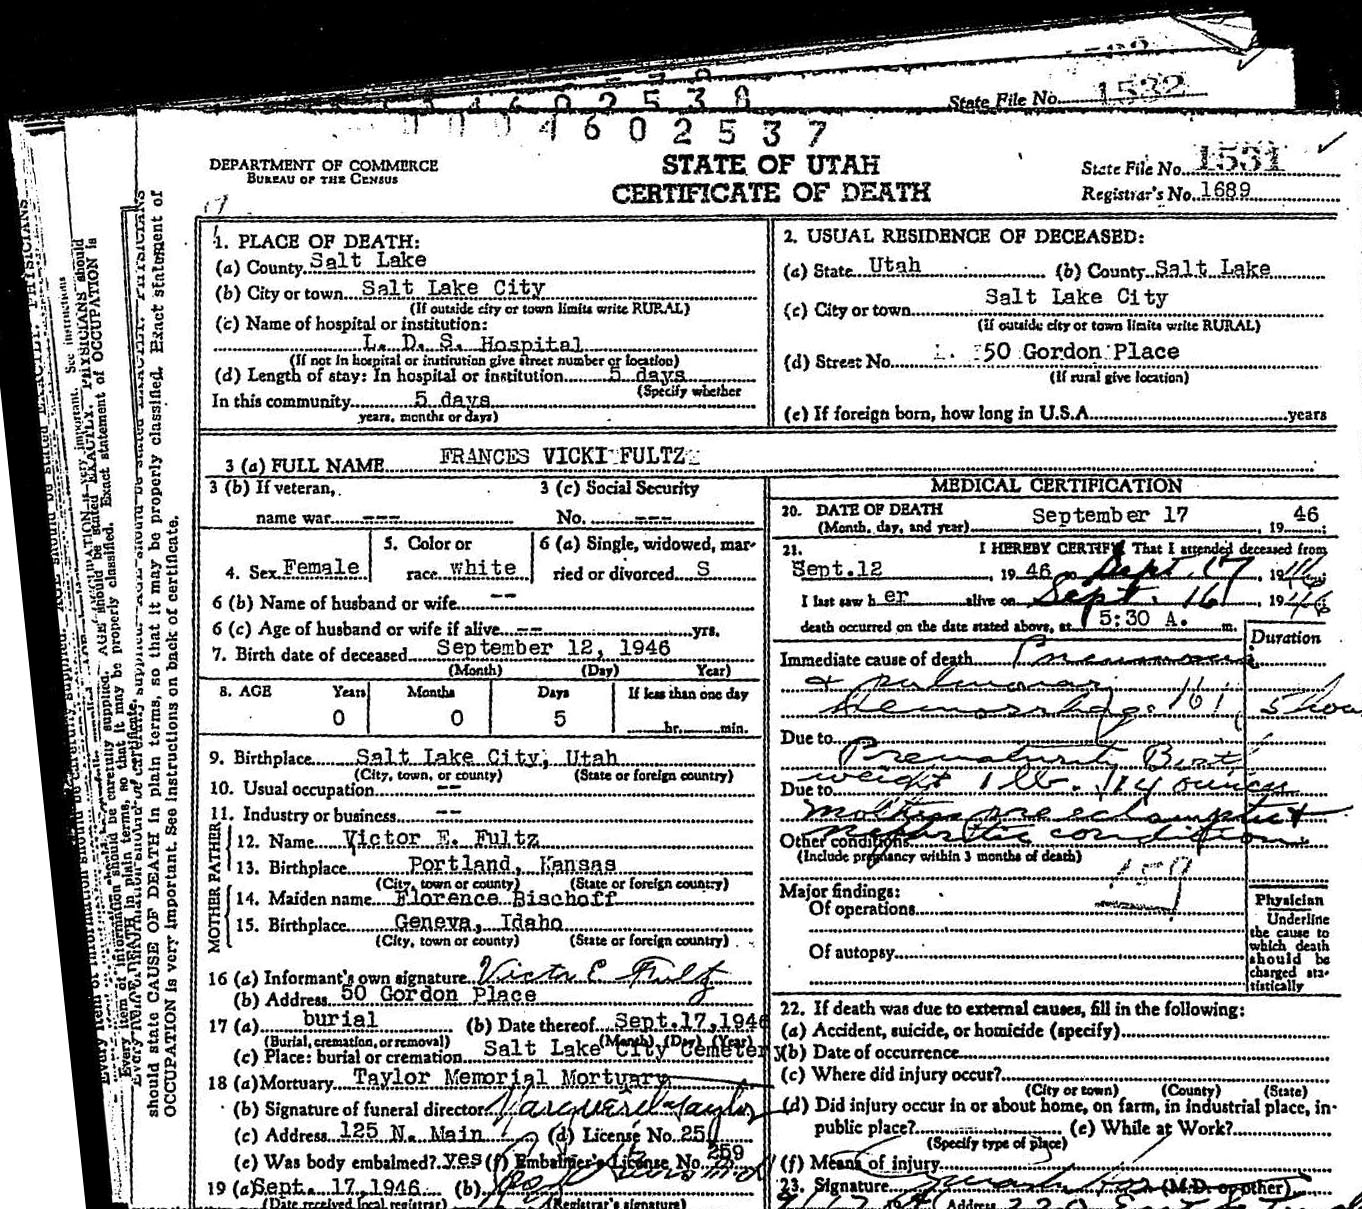 4602538
State File No. 1532
004602537
DEPARTMENT OF COMMERCE
BUREAU OF THE CENSUS
STATE OF UTAH
CERTIFICATE OF DEATH
State File No. 1531
Registrar's No. 1689
1. PLACE OF DEATH:
(a) County Salt Lake
(b) City or town Salt Lake City
(If outside city or town limits write RURAL)
(c) Name of hospital or institution:
L. D. S. Hospital
(If not in hospital or institution give street number or location)
(d) Length of stay: In hospital or institution 5 days
(Specify whether
In this community 5 days
years, months or days)
2. USUAL RESIDENCE OF DECEASED:
(a) State Utah (b) County Salt Lake
(c) City or town Salt Lake City
(If outside city or town limits write RURAL)
(d) Street No. 50 Gordon Place
(If rural give location)
(e) If foreign born, how long in U.S.A. years
3 (a) FULL NAME FRANCES VICKI FULTZ
3 (b) If veteran, 3 (c) Social Security
name war --- No. ---
4. Sex Female 5. Color or race white 6 (a) Single, widowed, married or divorced S
6 (b) Name of husband or wife --
6 (c) Age of husband or wife if alive -- yrs.
7. Birth date of deceased September 12, 1946
(Month) (Day) Year)
8. AGE Years Months Days If less than one day
0 0 5 hr. min.
9. Birthplace Salt Lake City, Utah
(City, town, or county) (State or foreign country)
10. Usual occupation --
11. Industry or business --
FATHER
12. Name Victor E. Fultz
13. Birthplace Portland, Kansas
(City, town or county) (State or foreign country)
MOTHER
14. Maiden name Florence Bischoff
15. Birthplace Geneva, Idaho
(City, town or county) (State or foreign country)
16 (a) Informant's own signature Victor E Fultz
(b) Address 50 Gordon Place
17 (a) burial (b) Date thereof Sept.17,1946
(Burial, cremation, or removal) (Month) (Day) (Year)
(c) Place: burial or cremation Salt Lake City Cemetery
18 (a) Mortuary Taylor Memorial Mortuary
(b) Signature of funeral director Taylor
(c) Address 125 N. Main (d) License No. 25
(e) Was body embalmed? yes (f) Embalmer's License No. 259
19 (a) Sept. 17,1946 (b)
(Date received local registrar) (Registrar's signature)
MEDICAL CERTIFICATION
20. DATE OF DEATH
(Month, day, and year) September 17, 19 46
21. I HEREBY CERTIFY That I attended deceased from
Sept.12, 19 46 Sept. 17 19 46
I last saw h er alive on Sept. 16, 19 46
death occurred on the date stated above, at 5:30 A. m.
Duration
Immediate cause of death Pneumonia
& pulmonary
hemorrhage 161
Due to Prematurity Birth
weight 1 lb. 14 ounces
Due to
mother preeclamptic &
Other conditions
(Include pregnancy within 3 months of death)
159
Major findings:
Of operations
Of autopsy
Physician
Underline
the cause to
which death
should be
charged sta-
tistically
22. If death was due to external causes, fill in the following:
(a) Accident, suicide, or homicide (specify)
(b) Date of occurrence
(c) Where did injury occur?
(City or town) (County) (State)
(d) Did injury occur in or about home, on farm, in industrial place, in
public place? (e) While at Work?
(Specify type of place)
(f) Means of injury
23. Signature (M.D. or other)
Address
should state CAUSE OF DEATH in plain terms, so that it may be properly classified. Exact statement of
OCCUPATION is very important. See instructions on back of certificate.